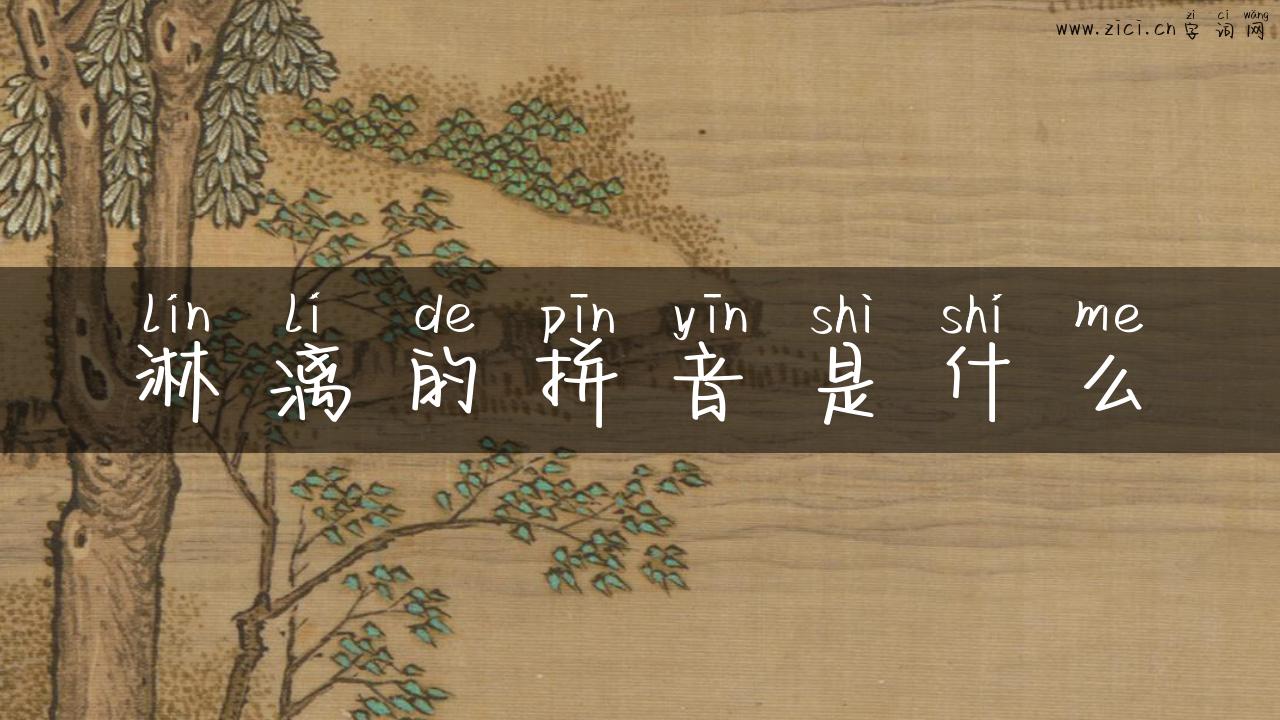 zì cí wǎng
www.zici.cn 字 词 网
lín lí de pīn yīn shì shí me
淋 漓 的 拼 音 是 什 么